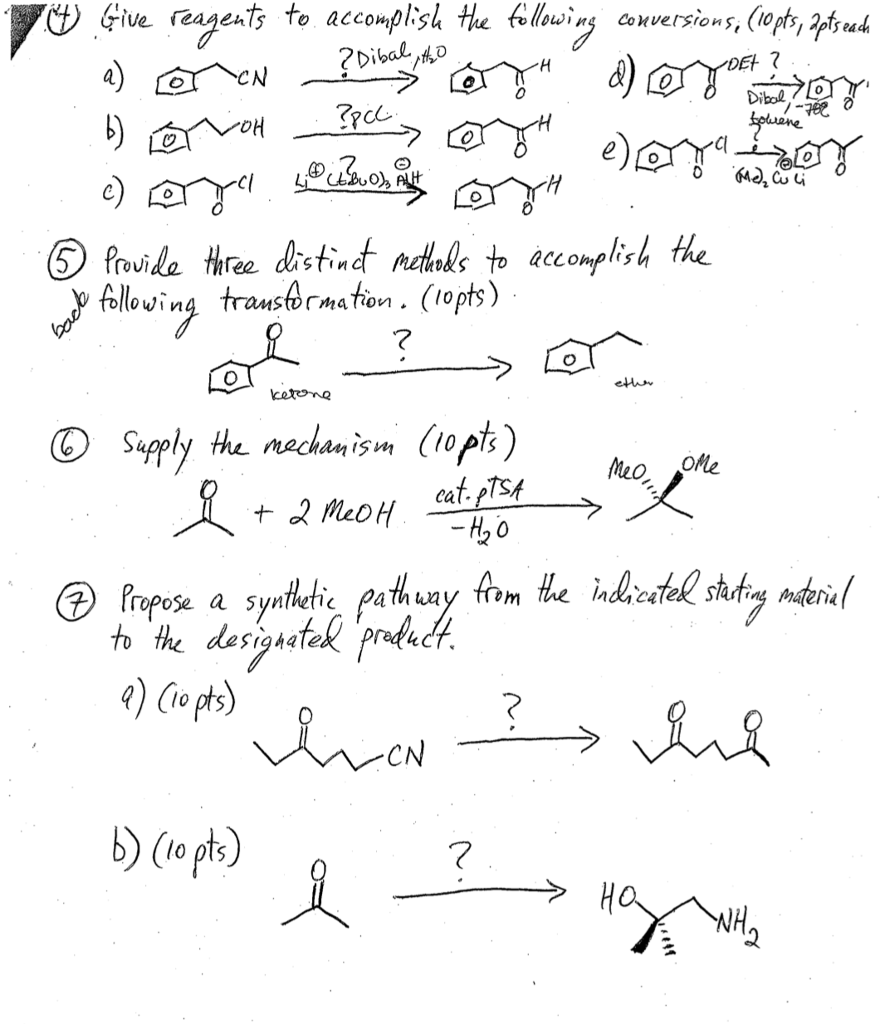 ④ Give reagents to accomplish the following conversions, (10pts, 2pts each
a) CN ? Dibal, H2O H O
b) OH ? pcc H O
c) Cl O Li⊕ ? (tBuO)3 AlH ⊖ H O
d) OEt O ? Dibal, -78c toluene O
e) Cl O ? (Me)2 CuLi ⊖ O
⑤ Provide three distinct methods to accomplish the
back following transformation. (10pts)
O ?
ketone
⑥ Supply the mechanism (10 pts)
O + 2 MeOH cat. pTSA -H2O MeO OMe
⑦ Propose a synthetic pathway from the indicated starting material
to the designated product.
a) (10 pts)
O CN ? O O
b) (10 pts)
O ? HO NH2